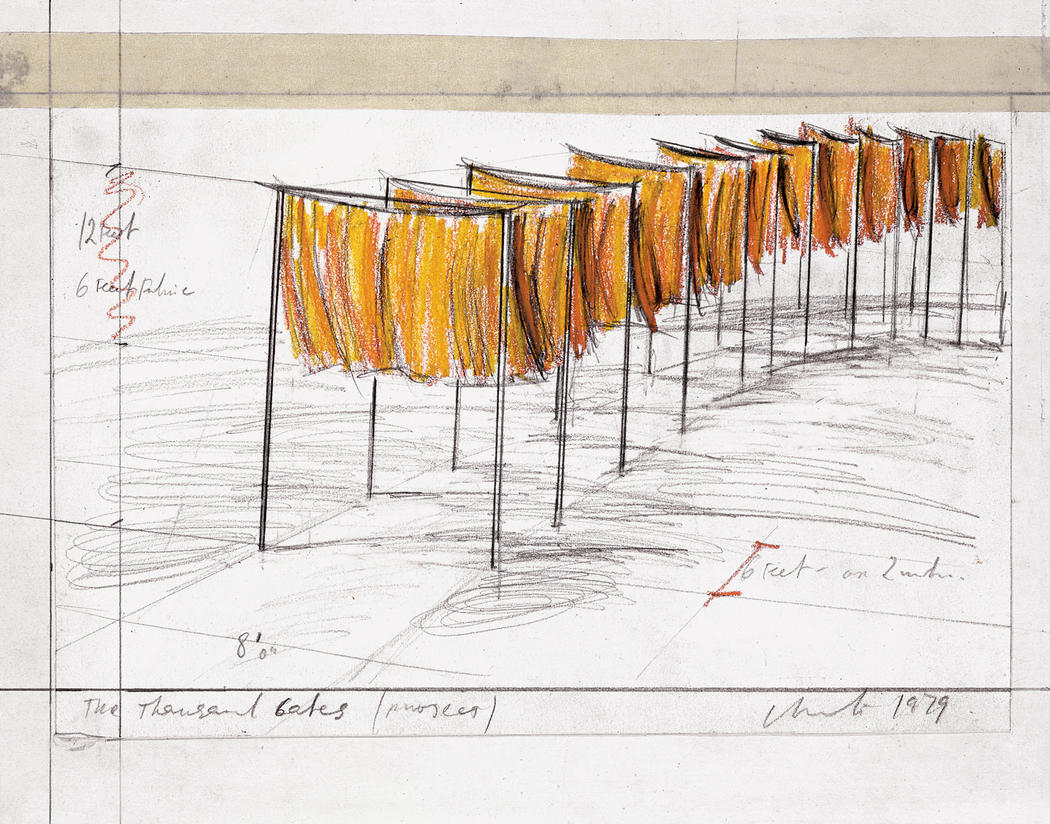 12 feet
6 feet Fabric
6 feet - or 2 metr.
8'0"
The Thousand Gates (project)
Christo 1979